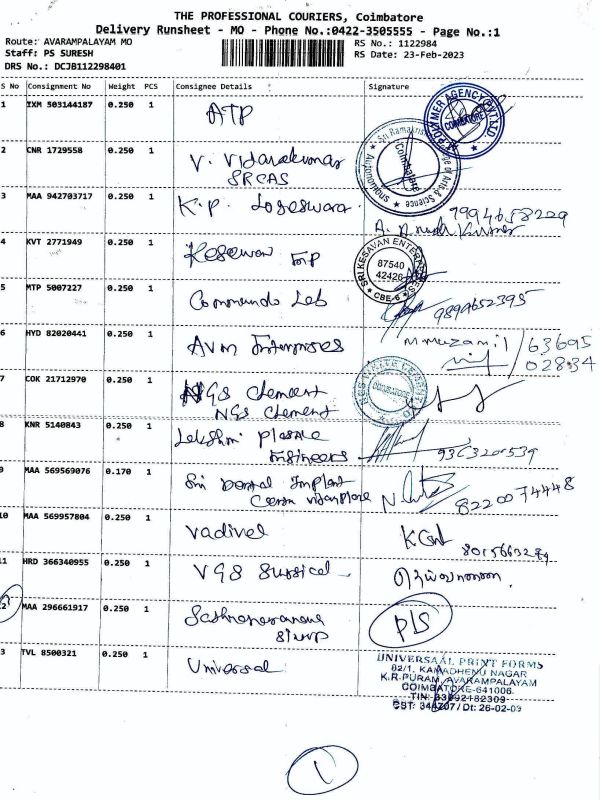 THE PROFESSIONAL COURIERS, Coimbatore
Delivery Runsheet - MO - Phone No.:0422-3505555 - Page No.:1
Route: AVARAMPALAYAM MO
RS No.: 1122984
Staff: PS SURESH
RS Date: 23-Feb-2023
DRS No.: DCJB112298401
S No Consignment No Weight PCS Consignee Details Signature
1 IXM 503144187 0.250 1 ATP
AGENCY PVT.LTD
COIMBATORE
2 CNR 1729558 0.250 1 V.
SRCAS
Sri Ramakrishna of Arts & Science
Coimbatore
Autonomous
3 MAA 942703717 0.250 1 K.P. Logeswara
7994658229
4 KVT 2771949 0.250 1 Kesavan
SRI KESAVAN ENTERPRISES
87540
42426
CBE-6
5 MTP 5007227 0.250 1 Commando Lab
9894652395
6 HYD 82020441 0.250 1 AVM Enterprises
M muzamil / 63695
02834
7 COK 21712970 0.250 1 NGS Clement
NGS Clement
8 KNR 5140843 0.250 1 Lakshmi
Engineers
9363201539
9 MAA 569569076 0.170 1 Sri Dental Implant
8220074448
10 MAA 569957804 0.250 1 Vadivel
11 HRD 366340955 0.250 1 VGS Surgical
12 MAA 296661917 0.250 1
PLS
13 TVL 8500321 0.250 1 Universal
UNIVERSAAL PRINT FORMS
82/1, KAMADHENU NAGAR
K.R.PURAM, AVARAMPALAYAM
COIMBATORE-641006.
TIN: 33992182309
CST: 344707/Dt: 26-02-03
1